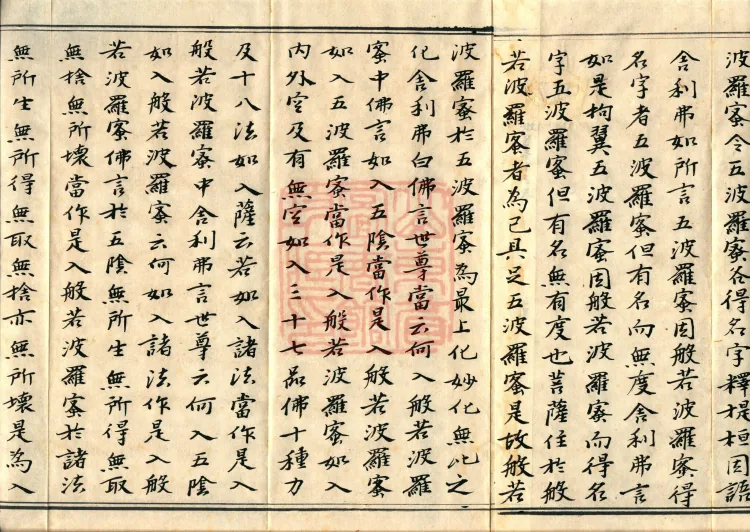 波羅蜜令五波羅蜜各得名字釋提桓因語
舍利弗如所言五波羅蜜因般若波羅蜜得
名字者五波羅蜜但有名向無度舍利弗言
如是拘翼五波羅蜜因般若波羅蜜而得名
字五波羅蜜但有名無有度也菩薩住於般
若波羅蜜者為已具足五波羅蜜是故般若
波羅蜜於五波羅蜜為最上化妙化無比之
化舍利弗白佛言世尊當云何入般若波羅
蜜中佛言如入五陰當作是入般若波羅蜜
如入五波羅蜜當作是入般若波羅蜜如入
內外空及有無空如入三十七品佛十種力
及十八法如入薩云若如入諸法當作是入
般若波羅蜜中舍利弗言世尊云何入五陰
如入般若波羅蜜云何如入諸法作是入般
若波羅蜜佛言於五陰無所生無所得無取
無捨無所壞當作是入般若波羅蜜於諸法
無所生無所得無取無捨亦無所壞是為入